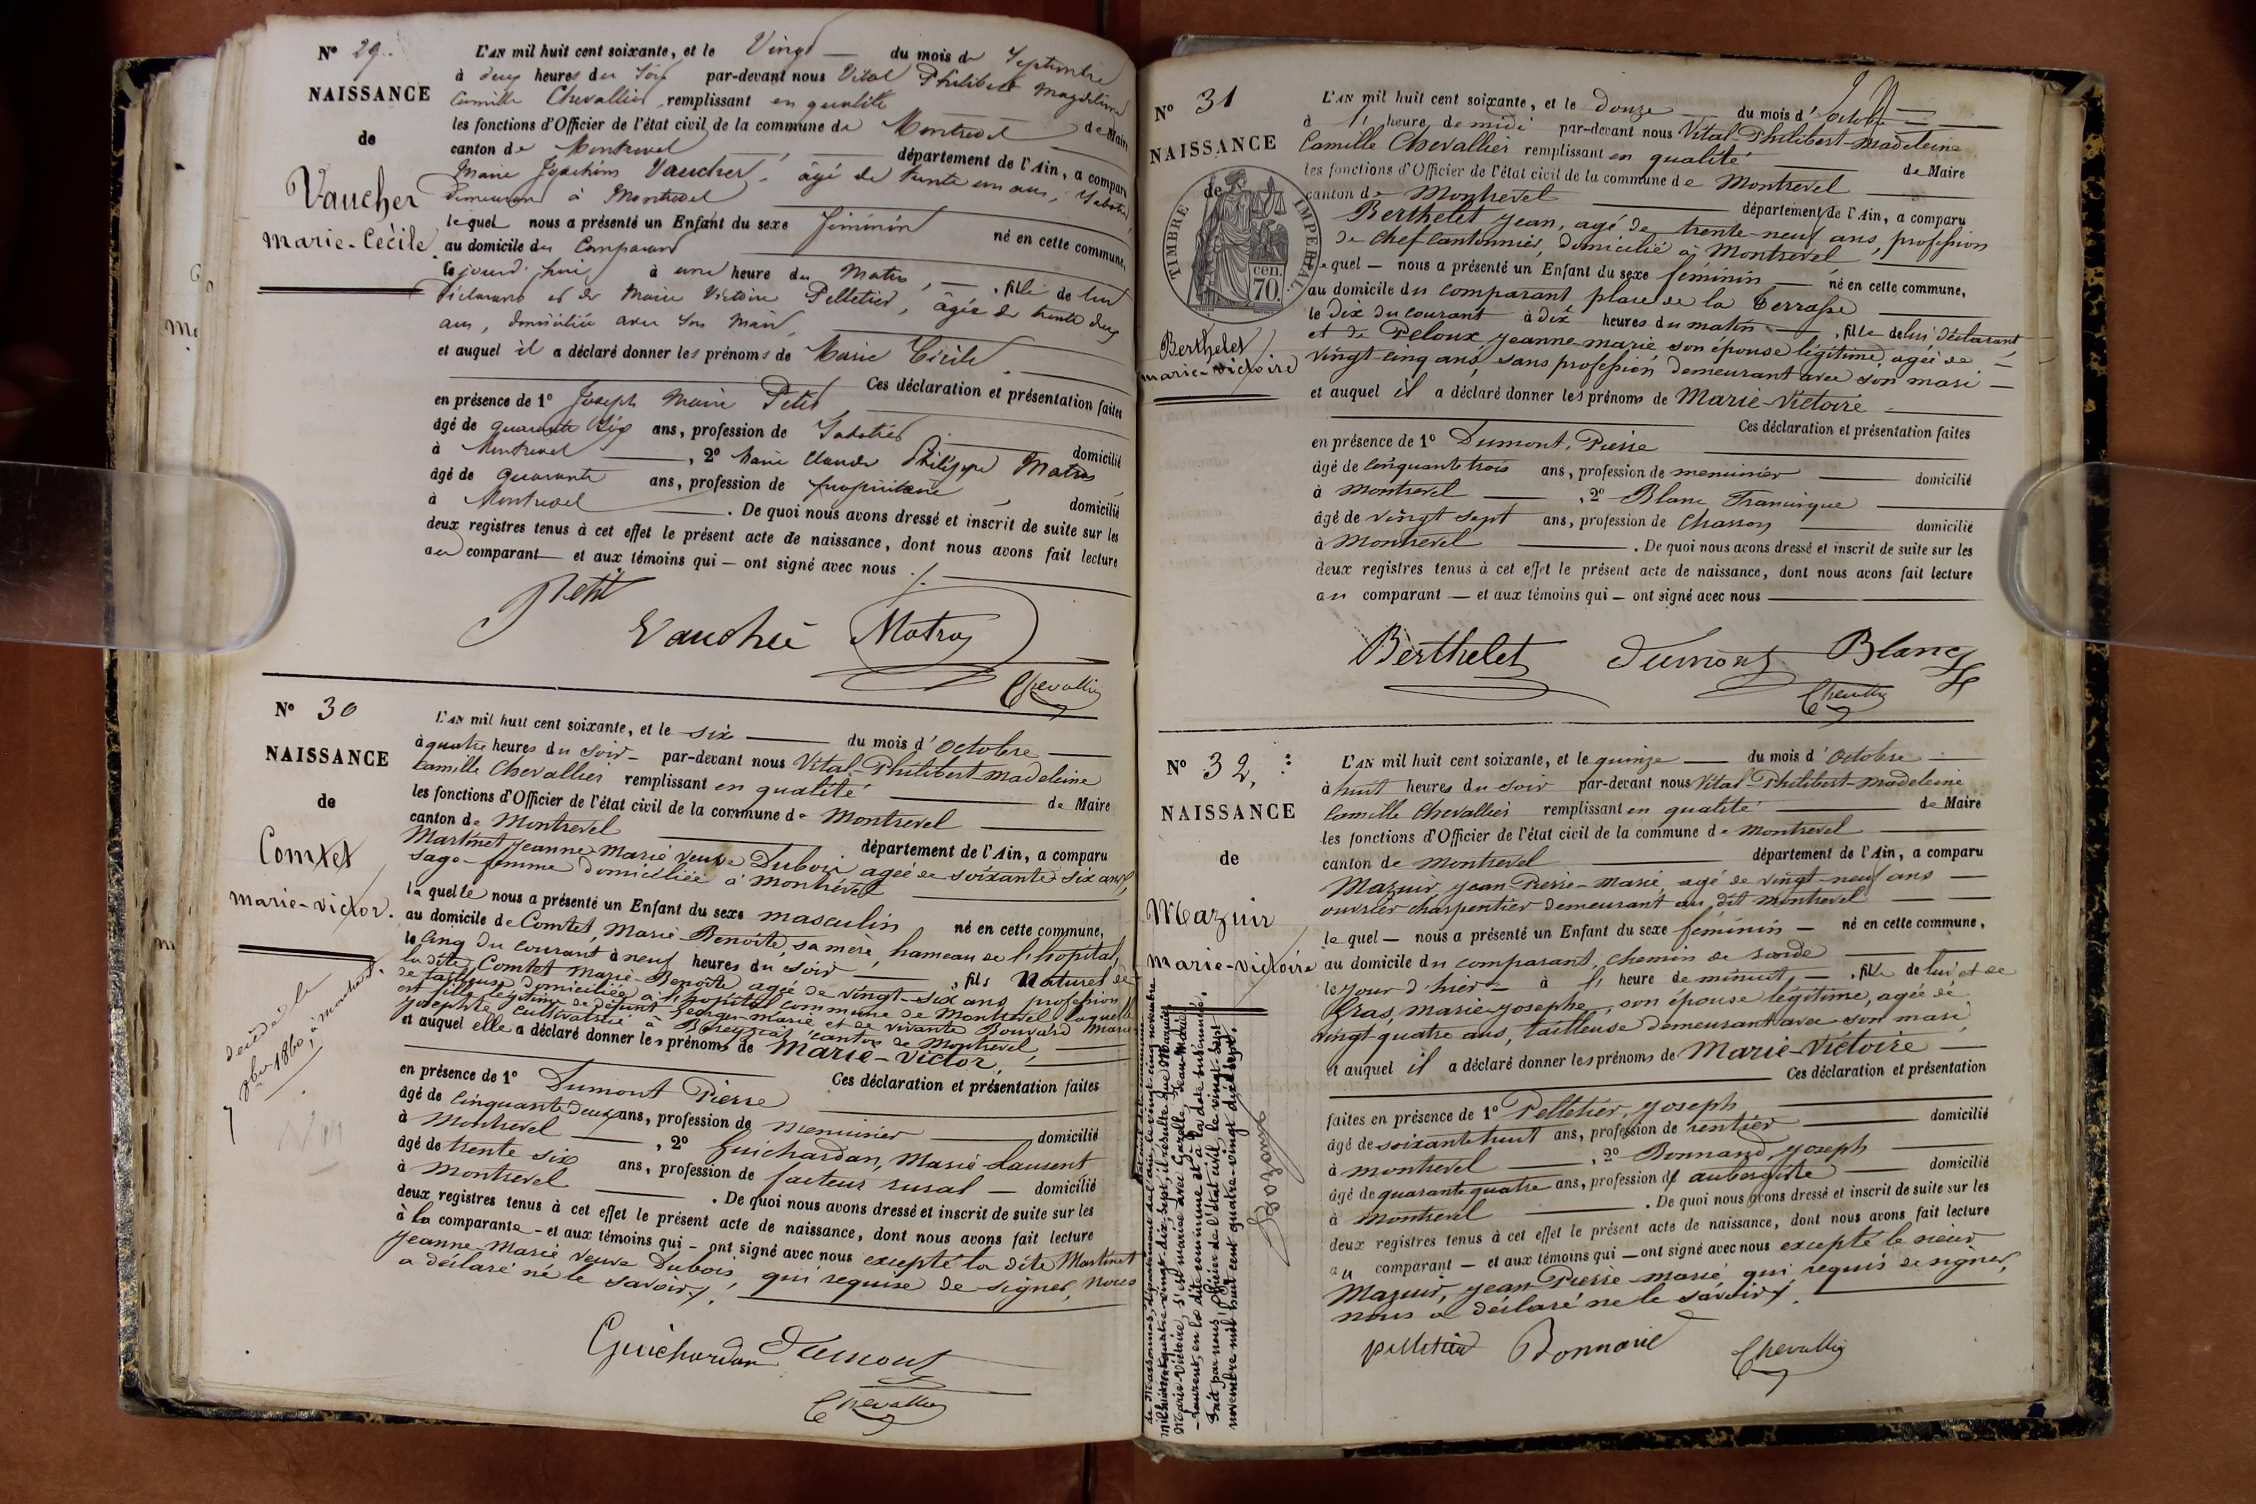 N° 29.
NAISSANCE
de
Vaucher
Marie-Cécile.
L'AN mil huit cent soixante, et le Vingt — du mois de Septembre
à deux heures du Soir par-devant nous Vital Philibert Magdeleine
Camille Chevallier remplissant en qualité de Maire
les fonctions d'Officier de l'état civil de la commune de Montrevel
canton de Montrevel département de l'Ain, a comparu
Marie Joachim Vaucher, âgé de trente un ans, Sabotier
demeurant à Montrevel
lequel nous a présenté un Enfant du sexe féminin né en cette commune,
au domicile du Comparant
le jourd'hui à une heure du Matin, — , fille de lui
Déclarant et de Marie Victoire Pelletier, âgée de trente deux
ans, domiciliée avec son Mari,
et auquel il a déclaré donner les prénoms de Marie Cécile
Ces déclaration et présentation faites
en présence de 1° Joseph Marie Petit
âgé de quarante six ans, profession de Sabotier domicilié
à Montrevel , 2° Marie Claude Philippe Matras
âgé de quarante ans, profession de propriétaire domicilié
à Montrevel . De quoi nous avons dressé et inscrit de suite sur les
deux registres tenus à cet effet le présent acte de naissance, dont nous avons fait lecture
au comparant — et aux témoins qui — ont signé avec nous ./.
Petit
Vauchér Matras
Chevallier
N° 30
NAISSANCE
de
Comtet
marie-victor.
décédé le
8bre 1860, à
L'AN mil huit cent soixante, et le six — du mois d'octobre —
à quatre heures du soir — par-devant nous Vital-Philibert madeleine
Camille Chevallier remplissant en qualité de Maire
les fonctions d'Officier de l'état civil de la commune de Montrevel
canton de Montrevel département de l'Ain, a comparu
Martinet Jeanne Marie veuve Dubois agée de soixante six ans,
sage-femme domiciliée à Montrevel
la quelle nous a présenté un Enfant du sexe masculin né en cette commune,
au domicile de Comtet, Marie Benoîte, sa mère, hameau de l'hopital,
le cinq du courant à neuf heures du soir — , fils Naturel de
la dite Comtet Marie-Benoîte agée de vingt-six ans profession
de tailleuse domiciliée à l'hopital commune de Montrevel laquelle
est fille légitime de défunt George-marie et de vivante Bouvard Marie
Josephte cultivatrice à Béreyziat canton de Montrevel,
et auquel elle a déclaré donner les prénoms de Marie-Victor,
Ces déclaration et présentation faites
en présence de 1° Dumont Pierre
âgé de cinquante deux ans, profession de menuisier — domicilié
à Montrevel — , 2° Guichardan, Marie Laurent
âgé de trente six ans, profession de facteur rural — domicilié
à Montrevel . De quoi nous avons dressé et inscrit de suite sur les
deux registres tenus à cet effet le présent acte de naissance, dont nous avons fait lecture
à la comparante — et aux témoins qui — ont signé avec nous excepté la dite Martinet
Jeanne Marie veuve Dubois, qui requise de signer, nous
a déclaré ne le savoir ./.
Guichardan Dumont
Chevallier
N° 31
NAISSANCE
de
TIMBRE IMPERIAL
70 cen.
Berthelet
marie-victoire
L'AN mil huit cent soixante, et le douze du mois d'octobre
à l' heure de midi par-devant nous Vital-Philibert-madeleine
Camille Chevallier remplissant en qualité de Maire
les fonctions d'Officier de l'état civil de la commune de Montrevel
canton de Montrevel département de l'Ain, a comparu
Berthelet Jean, agé de trente-neuf ans, profession
de chef cantonnier, domicilié à Montrevel
le quel — nous a présenté un Enfant du sexe féminin — né en cette commune,
au domicile du comparant place de la terrasse
le dix du courant à dix heures du matin — , fille de lui déclarant
et de Peloux Jeanne-marie son épouse légitime, agée de
vingt cinq ans, sans profession demeurant avec son mari —
et auquel il a déclaré donner les prénoms de Marie-Victoire
Ces déclaration et présentation faites
en présence de 1° Dumont, Pierre
âgé de cinquante trois ans, profession de menuisier — domicilié
à Montrevel — , 2° Blanc Francisque
âgé de vingt sept ans, profession de charron — domicilié
à Montrevel — . De quoi nous avons dressé et inscrit de suite sur les
deux registres tenus à cet effet le présent acte de naissance, dont nous avons fait lecture
au comparant — et aux témoins qui — ont signé avec nous —
Berthelet Dumont Blanc
Chevallier
N° 32,
NAISSANCE
de
Mazuir
marie-victoire
de Marsonnas, département de l'ain, le vingt cinq novembre
mil huit cent quatre-vingt-dix-sept, il résulte que Mazuir
Marie-Victoire, s'est mariée avec Jean-Marie
-Laurent, en la dite commune et à la date susénoncée.
Fait par nous, Officier de l'état civil, le vingt-sept
novembre mil huit cent quatre-vingt dix-sept.
L'AN mil huit cent soixante, et le quinze — du mois d'octobre —
à huit heures du soir par-devant nous Vital-Philibert-Madeleine
Camille Chevallier remplissant en qualité de Maire
les fonctions d'Officier de l'état civil de la commune de Montrevel
canton de Montrevel département de l'Ain, a comparu
Mazuir, Jean-Pierre-Marie, agé de vingt-neuf ans —
ouvrier charpentier demeurant au dit Montrevel —
le quel — nous a présenté un Enfant du sexe féminin — né en cette commune,
au domicile du comparant, chemin de ronde
le jour d'hier à l' heure de minuit, — , fille de lui et de
Gras, marie-josephe, son épouse légitime, agée de
vingt-quatre ans, tailleuse demeurant avec son mari,
et auquel il a déclaré donner les prénoms de Marie-Victoire —
Ces déclaration et présentation
faites en présence de 1° Pelletier, Joseph
âgé de soixante huit ans, profession de rentier domicilié
à Montrevel — , 2° Bonnand, Joseph
âgé de quarante quatre ans, profession d'aubergiste domicilié
à Montrevel — . De quoi nous avons dressé et inscrit de suite sur les
deux registres tenus à cet effet le présent acte de naissance, dont nous avons fait lecture
au comparant — et aux témoins qui — ont signé avec nous excepté le sieur
Mazuir, Jean-Pierre-marie, qui, requis de signer,
nous a déclaré ne le savoir ./.
pelletier Bonnand Chevallier